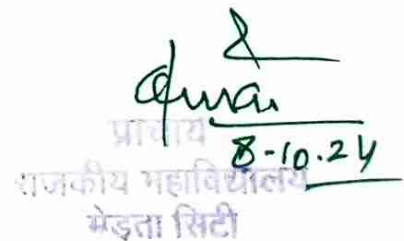 8-10.24
प्राचार्य
राजकीय महाविद्यालय
मेड़ता सिटी